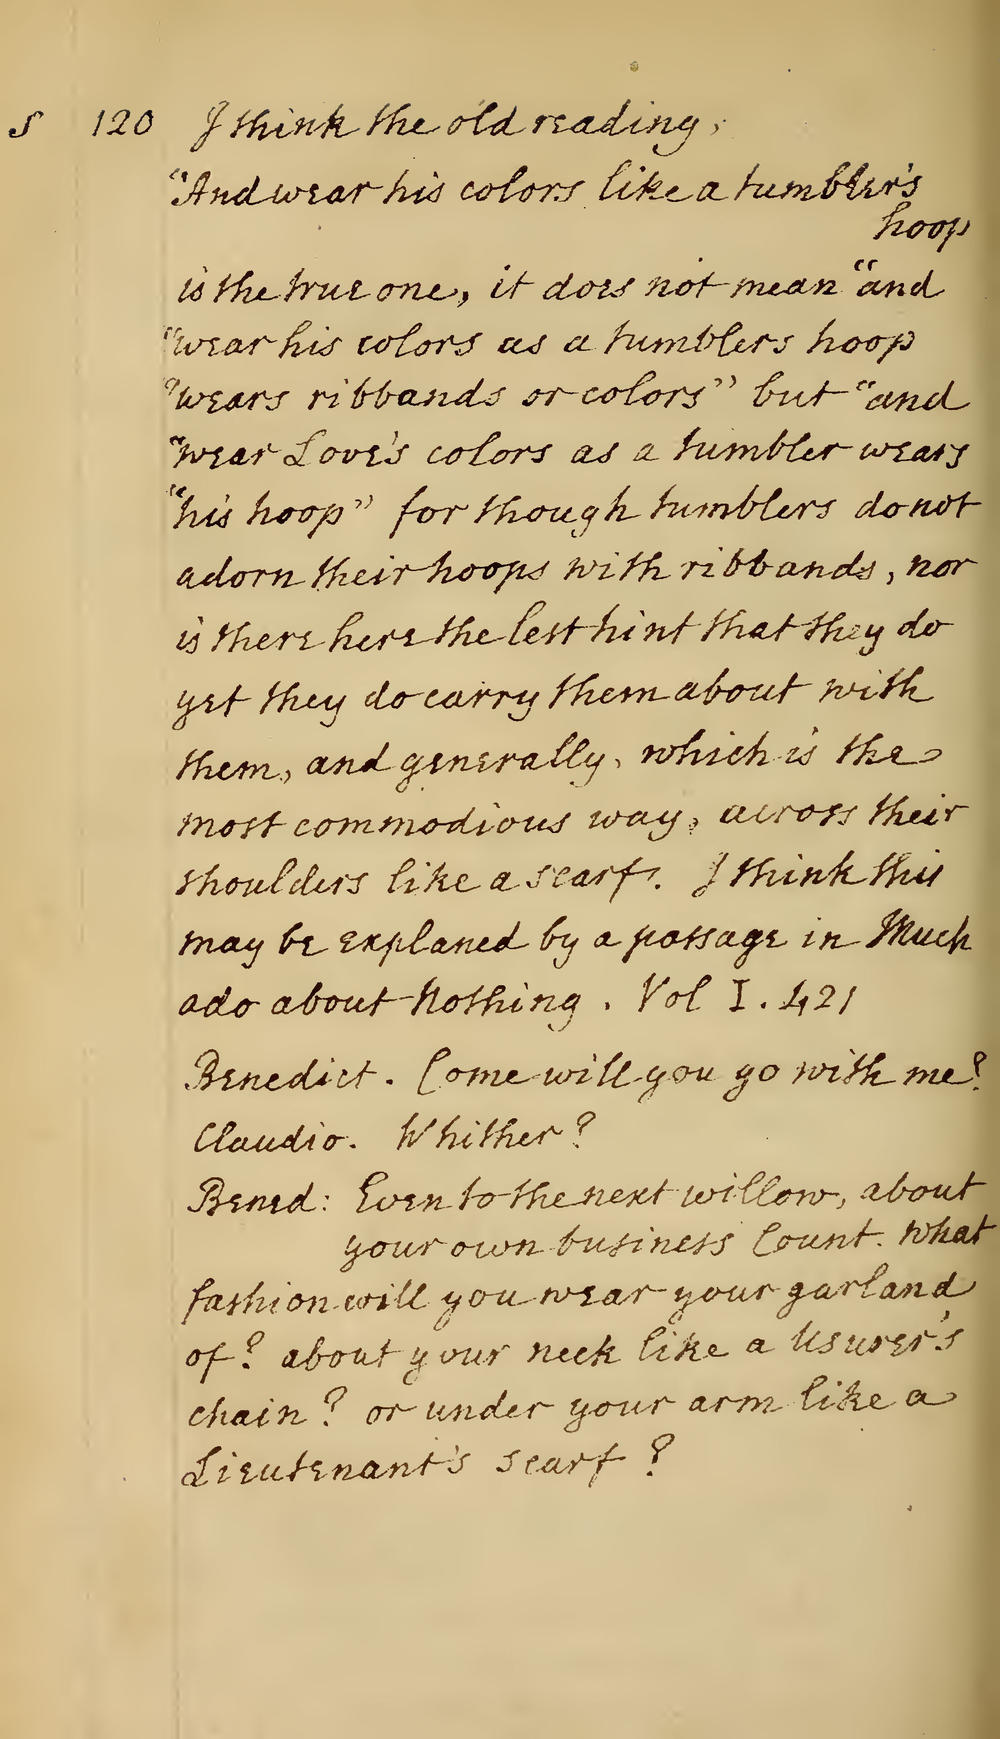 S 120 I think the old reading,
"And wear his colors like a tumbler's
hoop
is the true one, it does not mean "and
"wear his colors as a tumblers hoop
"wears ribbands or colors" but "and
"wear Love's colors as a tumbler wears
"his hoop" for though tumblers do not
adorn their hoops with ribbands, nor
is there here the lest hint that they do
yet they do carry them about with
them, and generally, which is the
most commodious way, across their
shoulders like a scarf. I think this
may be explaned by a passage in Much
ado about Nothing. Vol I. 421
Benedict. Come will you go with me?
Claudio. Whither?
Bened: Even to the next willow, about
your own business Count. What
fashion will you wear your garland
of? about your neck like a Usurer's
chain? or under your arm like a
Lieutenant's scarf?